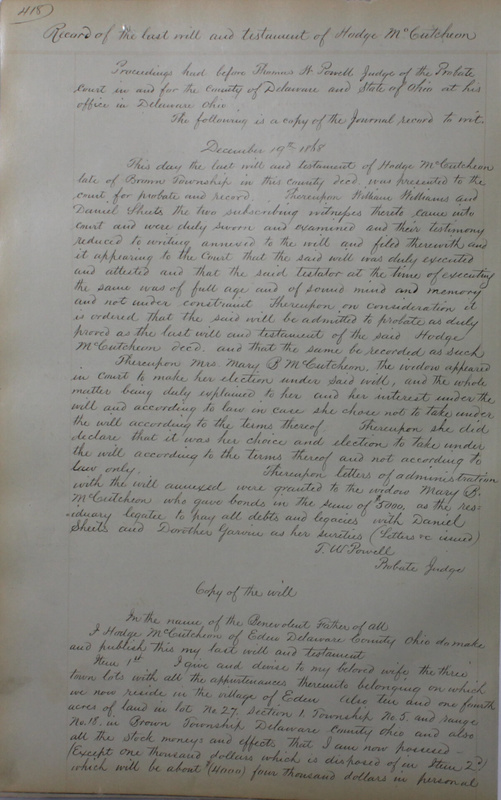 418
Record of the last will and testament of Hodge McCutcheon
Proceedings had before Thomas W Powell Judge of the Probate
Court in and for the County of Delaware and State of Ohio at his
office in Delaware Ohio
The following is a copy of the Journal record to wit.
December 19th 1868
This day the last will and testament of Hodge McCutcheon
late of Brown Township in this county decd. was presented to the
court for probate and record. Thereupon William Williams and
Daniel Sheets the two subscribing witnesses thereto came into
court and were duly sworn and examined and their testimony
reduced to writing annexed to the will and filed therewith and
it appearing to the Court that the said will was duly executed
and attested and that the said testator at the time of executing
the same was of full age and of sound mind and memory
and not under constraint. Thereupon on consideration it
is ordered that the said will be admitted to probate as duly
proved as the last will and testament of the said Hodge
McCutcheon decd. and that the same be recorded as such
Thereupon Mrs. Mary B. McCutcheon, the widow appeared
in court to make her election under said will, and the whole
matter being duly explained to her and her interest under the
will and according to law in case she chose not to take under
the will according to the terms thereof Thereupon she did
declare that it was her choice and election to take under
the will according to the terms thereof and not according to
law only. Thereupon letters of administration
with the will annexed were granted to the widow Mary B.
McCutcheon who gave bonds in the sum of $5000, as the res-
iduary legatee to pay all debts and legacies with Daniel
Sheets and Dorothea Garvin as her sureties (Letters &c issued)
T. W. Powell
Probate Judge
Copy of the will
In the name of the Benevolent Father of all
I Hodge McCutcheon of Eden Delaware County Ohio do make
and publish this my last will and testament
Item 1st I give and devise to my beloved wife the three
town lots with all the appurtuances thereunto belonging on which
we now reside in the village of Eden also ten and one fourth
acres of land in lot No 27, section 1. Township No 5. and range
No. 18. in Brown Township Delaware County Ohio and also
all the stock moneys and effects that I am now possessed -
(Except one thousand dollars which is disposed of in Item 2d)
which will be about $(4000) four thousand dollars in personal